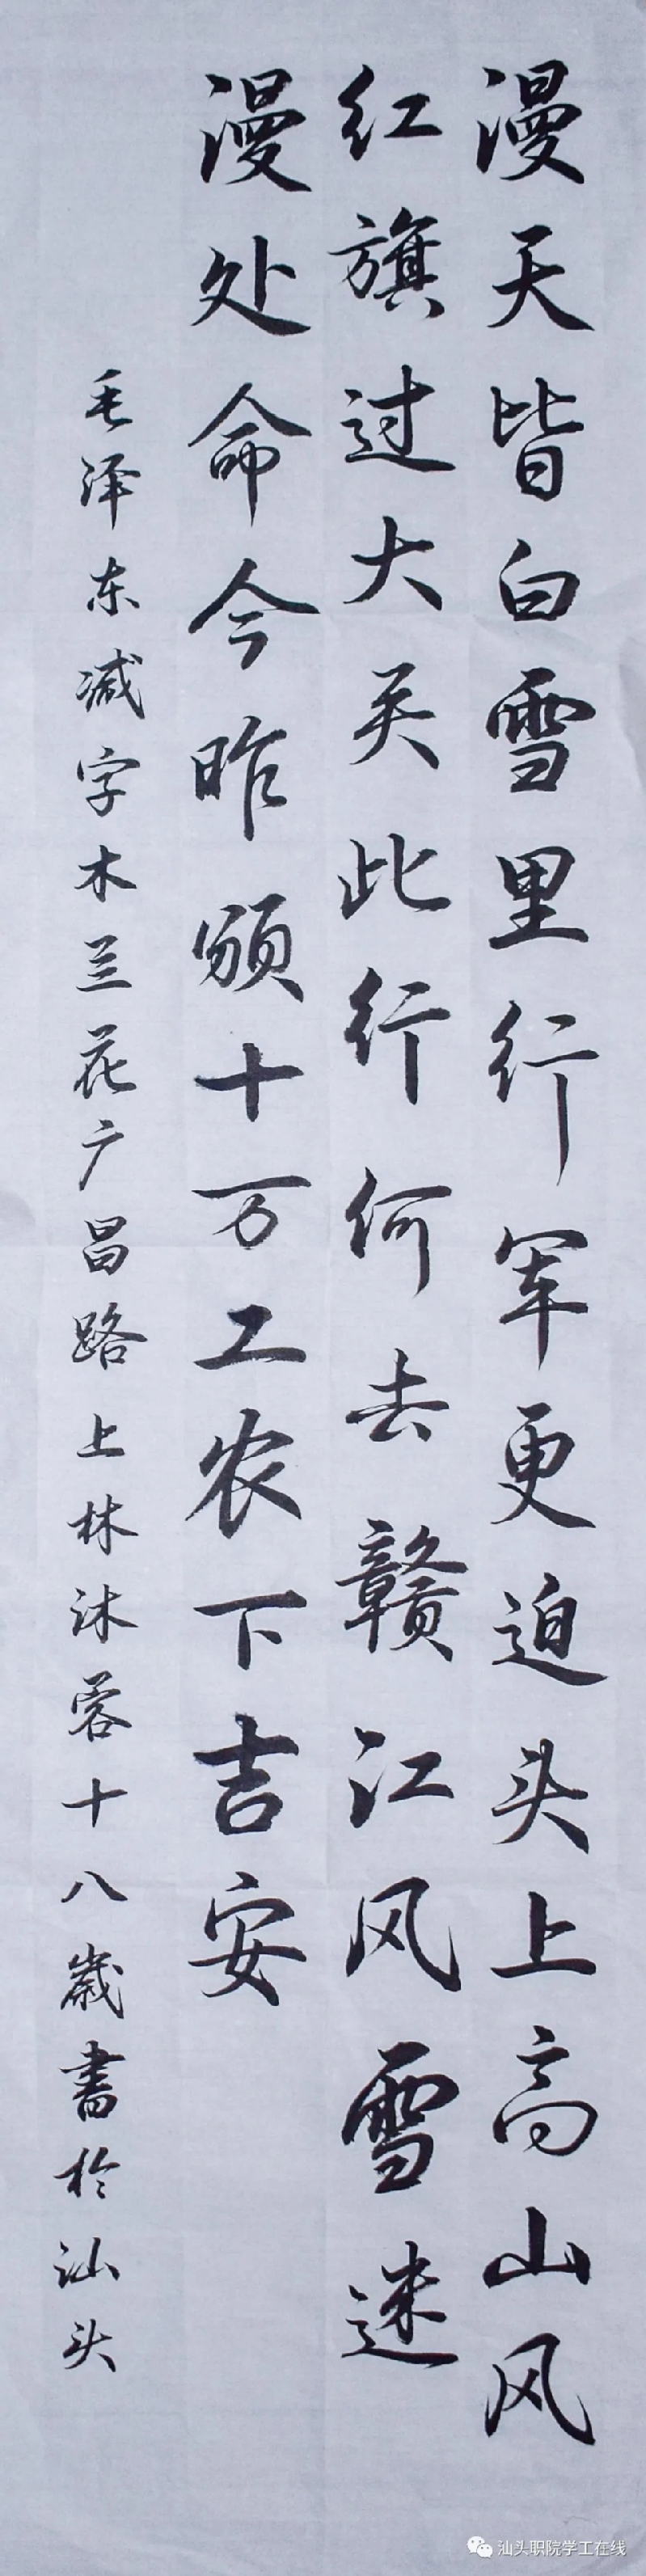 漫天皆白雪里行军更迫头上高山风
红旗过大关此行何去赣江风雪迷
漫处命令昨颁十万工农下吉安
毛泽东减字木兰花广昌路上林沐蓉十八歲書於汕头
汕头职院学工在线